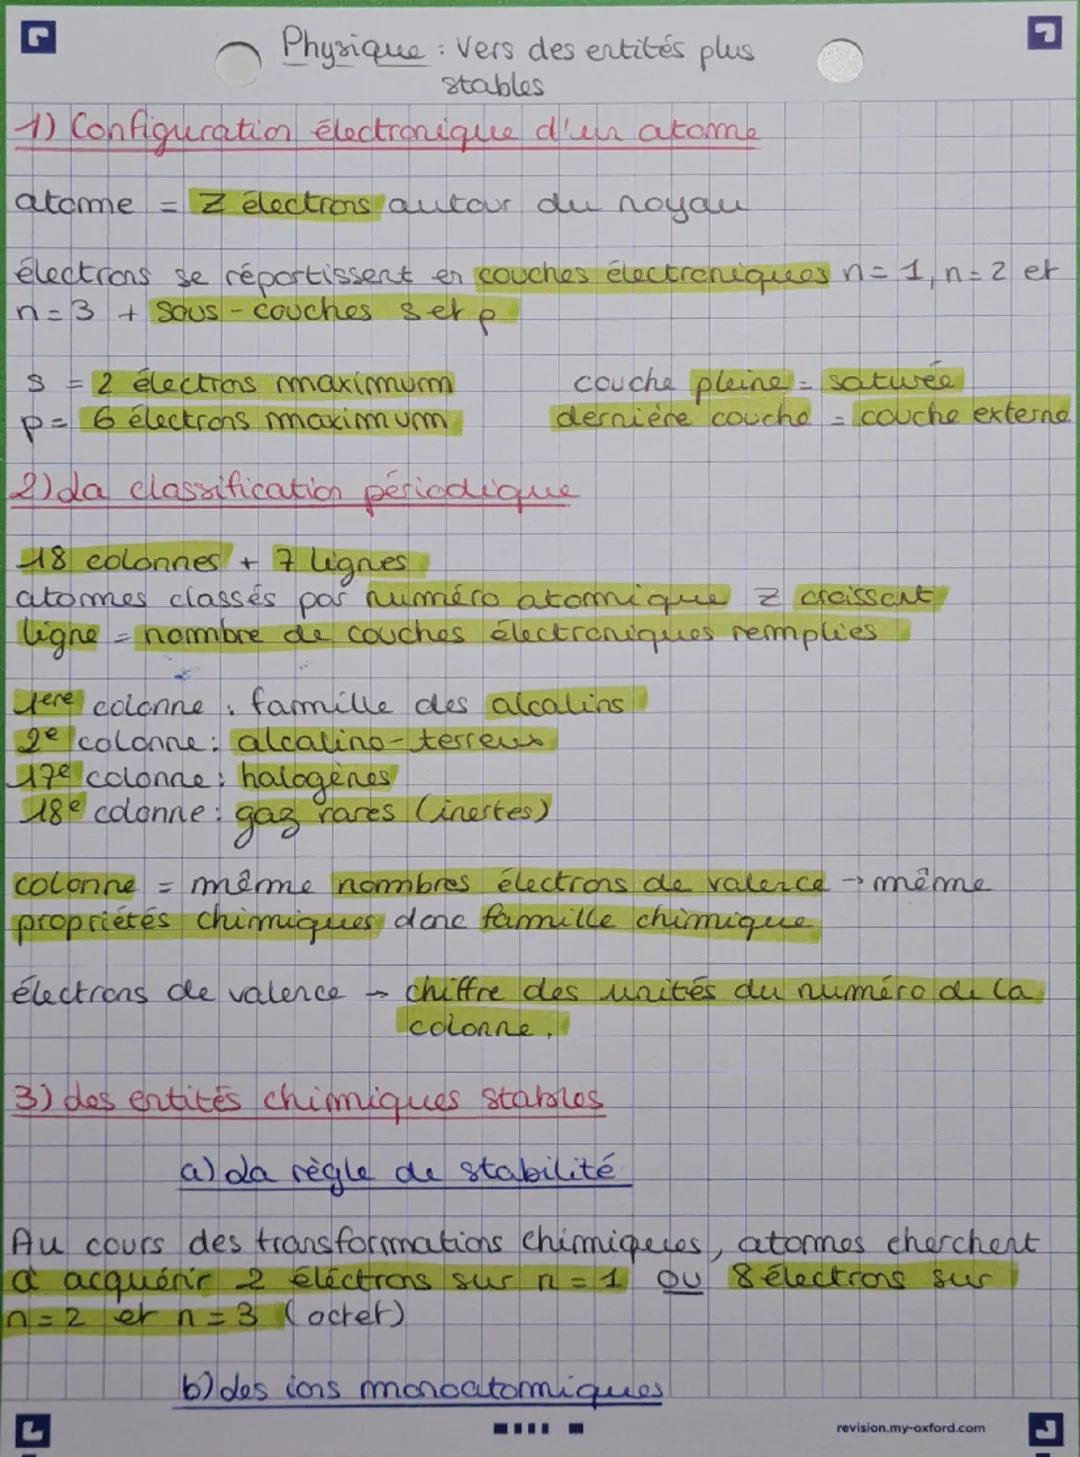 Physique : Vers des entités plus
stables
1) Configuration électronique d'un atome
atome = Z électrons autour du noyau
électrons se répartissent en couches électroniques n = 1, n = 2 et
n = 3 + sous-couches s et p
s = 2 électrons maximum
p = 6 électrons maximum
couche pleine = saturée
dernière couche = couche externe
2) La classification périodique
18 colonnes + 7 lignes
atomes classés par numéro atomique Z croissant
ligne = nombre de couches électroniques remplies
1ere colonne : famille des alcalins
2e colonne : alcalino-terreux
17e colonne : halogènes
18e colonne : gaz rares (inertes)
colonne = même nombres électrons de valence → même
propriétés chimiques donc famille chimique
électrons de valence → chiffre des unités du numéro de la
colonne.
3) Les entités chimiques stables
a) La règle de stabilité
Au cours des transformations chimiques, atomes cherchent
à acquérir 2 électrons sur n = 1 ou 8 électrons sur
n = 2 et n = 3 (octet)
b) Les ions monoatomiques
revision.my-oxford.com